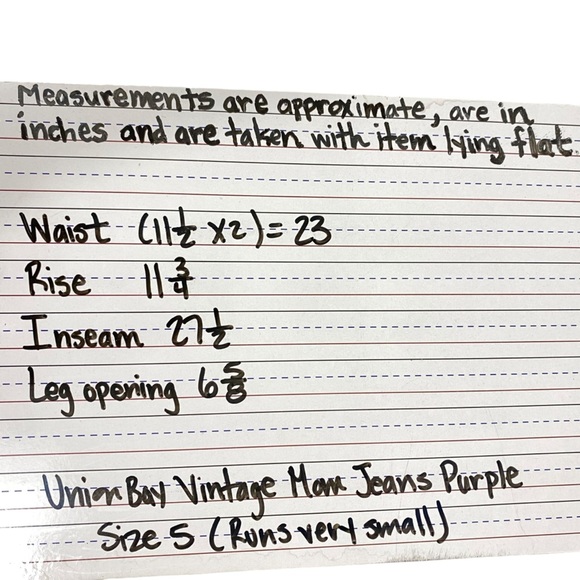 Measurements are approximate, are in
inches and are taken with item lying flat.
Waist (11 1/2 x2)= 23
Rise 11 3/4
Inseam 27 1/2
Leg opening 6 5/8
Union Bay Vintage Mom Jeans Purple
Size 5 (Runs very small)